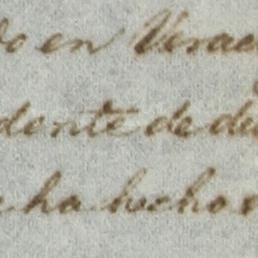 do en Verac
dente de de
ha hecho